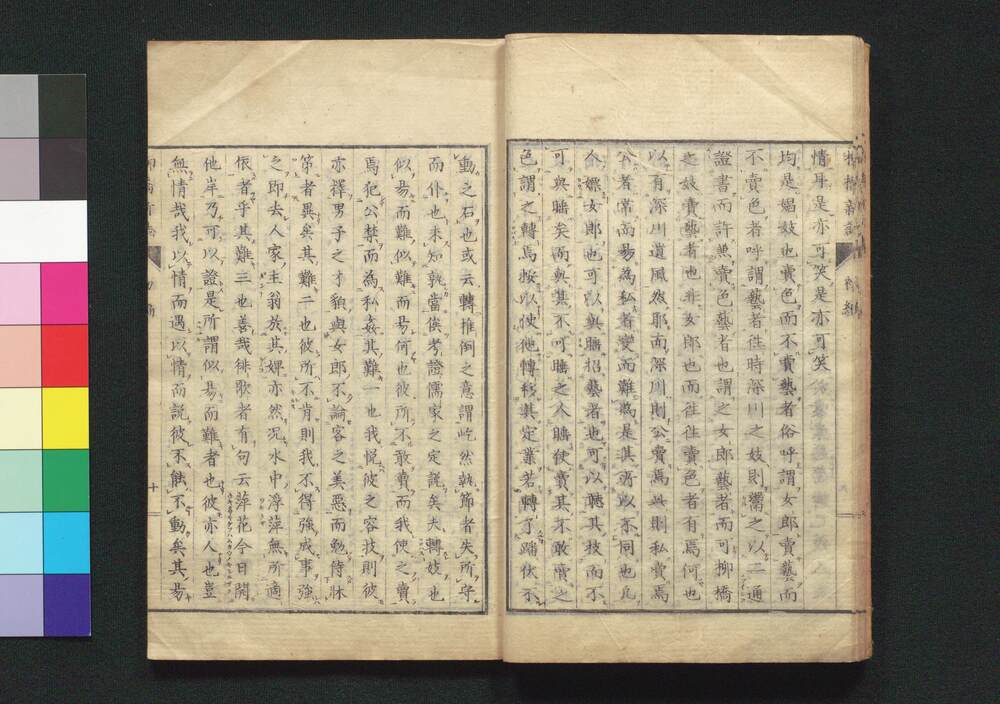 情耳是亦可笑是亦可笑
均是媚妓也賣色而不賣藝者俗呼謂女郎賣藝而
不賣色者呼謂藝者往時深川之妓則鬻之以二通
證書而許兼賣色藝者也謂之女郎藝者而可柳橋
之妓賣藝者也非女郎也而往往賣色者有焉何也
以有深川遺風故耶而深川則公賣焉此則私賣焉
公者常而易為私者變而難為是其所以不同也凡
命嫖女郎也可以與睡招藝者也可以聽其技而不
可與睡矣而與其不可睡之人睡使賣其不敢賣之
色謂之轉焉按以使他轉移其定業若轉了踏伏不
動之石也或云轉推倒之意謂屹然執節者失所守
而仆也未知孰當俟考證儒家之定説矣夫轉妓也
似易而難似難而易何也彼所不敢賣而我使之賣
焉犯公禁而為私姦其難一也我悦彼之容技則彼
亦擇男子之才貌與女郎不論客之美惡而勉侍牀
笫者異矣其難二也彼所不肯則我不得強成事強
之即去人家主翁於其婢亦然況水中浮萍無所適
依者乎其難三也善哉徘歌者有句云萍花今日開
他岸乃可以證是所謂似易而難者也彼亦人也豈
無情哉我以情而遇以情而説彼不能不動矣其易
十